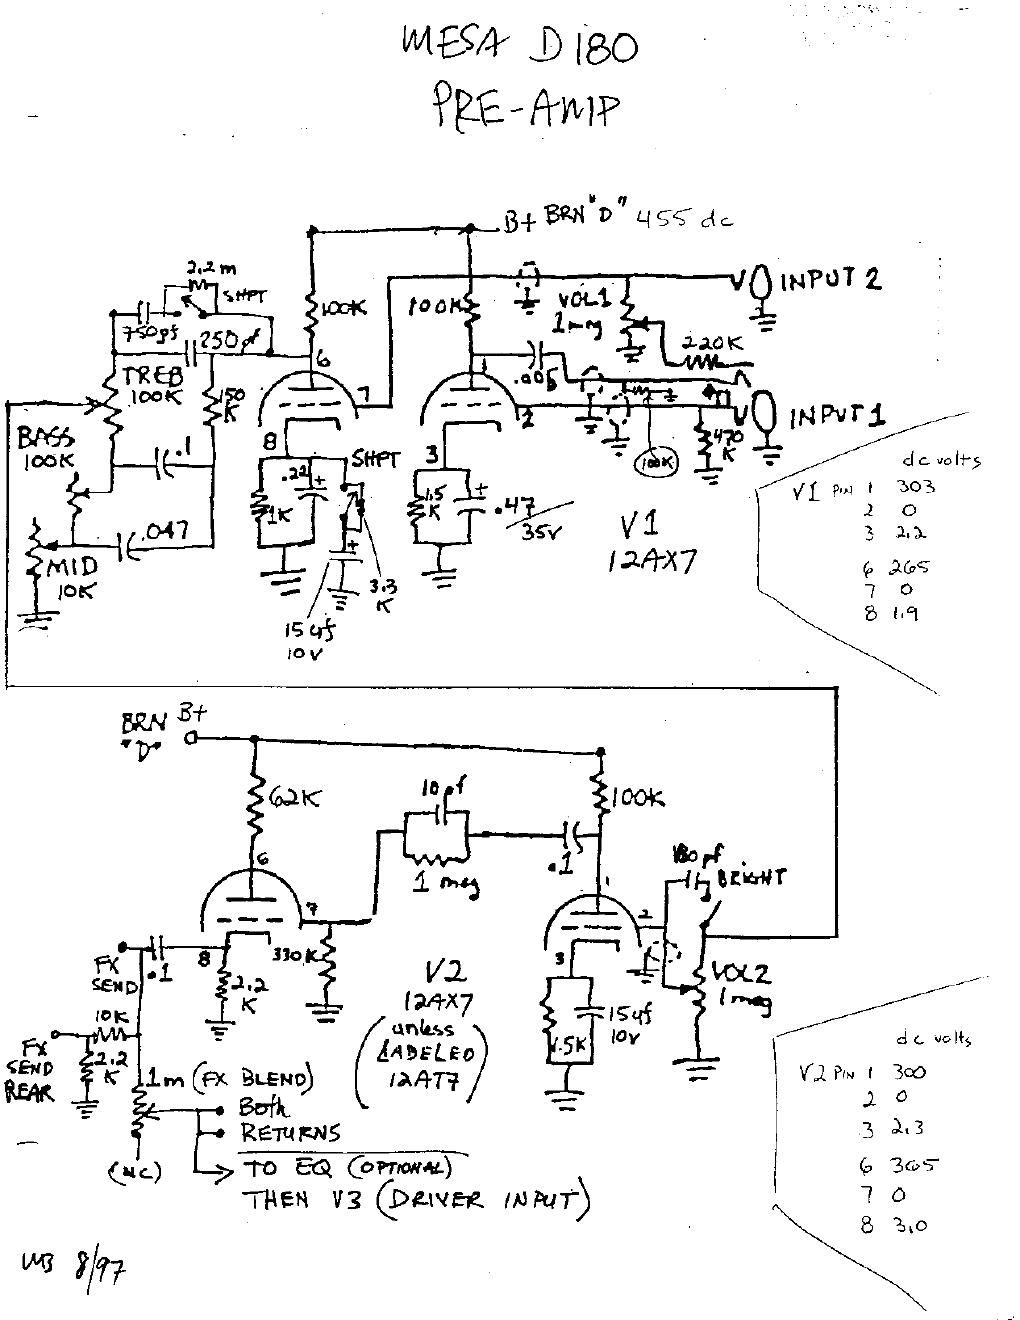 MESA D180
PRE-AMP
B+ BRN "D" 455 dc
2.2m
SHPT
750pf
250pf
100K
100K
VOL1
1meg
INPUT 2
220K
6
7
1
.005
TREB
100K
150
K
2
INPUT 1
BASS
100K
.1
8
SHPT
3
100K
470
K
.22
1K
1.5
K
.47
35V
V1
12AX7
.047
MID
10K
3.3
K
15uf
10V
dc volts
V1 PIN 1 303
2 0
3 2.2
6 265
7 0
8 1.9
BRN B+
"D"
62K
10pf
100K
6
1 meg
.1
180pf
BRIGHT
7
1
2
8
330K
3
FX
SEND
.1
2.2
K
V2
12AX7
(unless
LABELED
12AT7)
VOL2
1meg
15uf
10V
1.5K
10K
FX
SEND
REAR
2.2
K
1m (FX BLEND)
Both
RETURNS
(NC)
TO EQ (OPTIONAL)
THEN V3 (DRIVER INPUT)
dc volts
V2 PIN 1 300
2 0
3 2.3
6 365
7 0
8 3.0
8/97